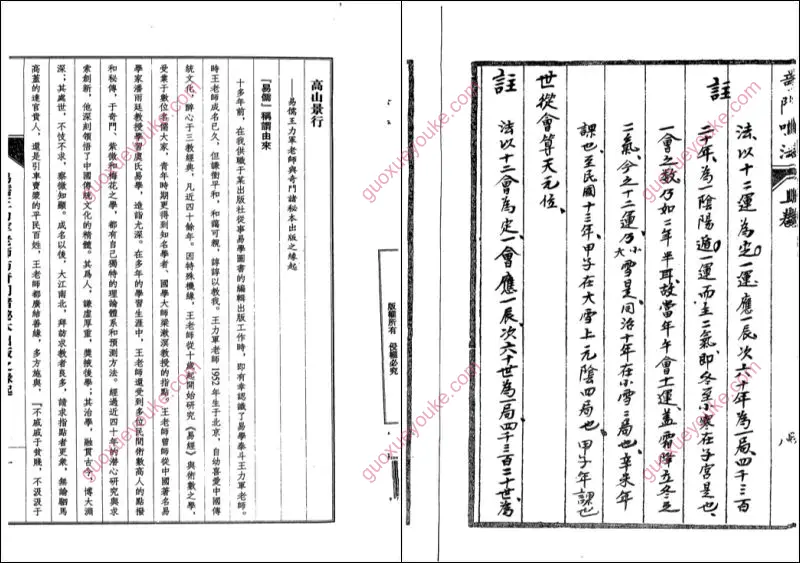 高山景行
——易儒王力軍老師與奇門諸秘本出版之緣起
『易儒』稱謂由來
十多年前，在我供職于某出版社從事易學圖書的編輯出版工作時，即有幸認識了易學泰斗王力軍老師。
時王老師成名已久，但謙衝平和，和藹可親，諄諄以教我。王力軍老師1952年生于北京，自幼喜愛中國傳
統文化，醉心于三教經典，凡近四十餘年。因特殊機緣，王老師從十歲起開始研究《易經》與術數之學，
受業于數位名儒大家，青年時期更得到知名學者、國學大師梁漱溟教授的指點。王老師曾師從中國著名易
學家潘雨廷教授學習虞氏易學，造詣尤深。在多年的學習生涯中，王老師還受到多位民間術數高人的點撥
和秘傳，于奇門、紫微和梅花之學，都有自己獨特的理論體系和預測方法。經過近四十年的潛心研究與求
索創新，他深刻領悟了中國傳統文化的精髓。其爲人，謙虛厚重，獎掖後學；其治學，融貫古今，博大淵
深；其處世，不忮不求，察微知顯。成名以後，大江南北，拜訪求教者良多，請求指點者更衆，無論駟馬
高蓋的達官貴人，還是引車賣漿的平民百姓，王老師都廣結善緣，多方施與，『不戚戚于貧賤，不汲汲于
版權所有 侵權必究
奇門 法 上卷
法以十二運為定一運應一辰次六十年為一局四千三百
二十年為一陰陽遁一運而主二氣即冬至小寒在子宮是也
註
一會之數乃如二年半耳故當年午會十二運蓋霜降立冬之
二氣今之十二運乃小雪大雪是同治十年在小雪二局也辛未年
課也至民國十三年甲子在大雪上一元陰四局也甲子年課也
世從會算天元位
註
法以十二會為定一會應一辰次六十世為一局四千三百二十世為
guoxueyouke.com
guoxueyouke.com
guoxueyouke.com
guoxueyouke.com
guoxueyouke.com
guoxueyouke.com